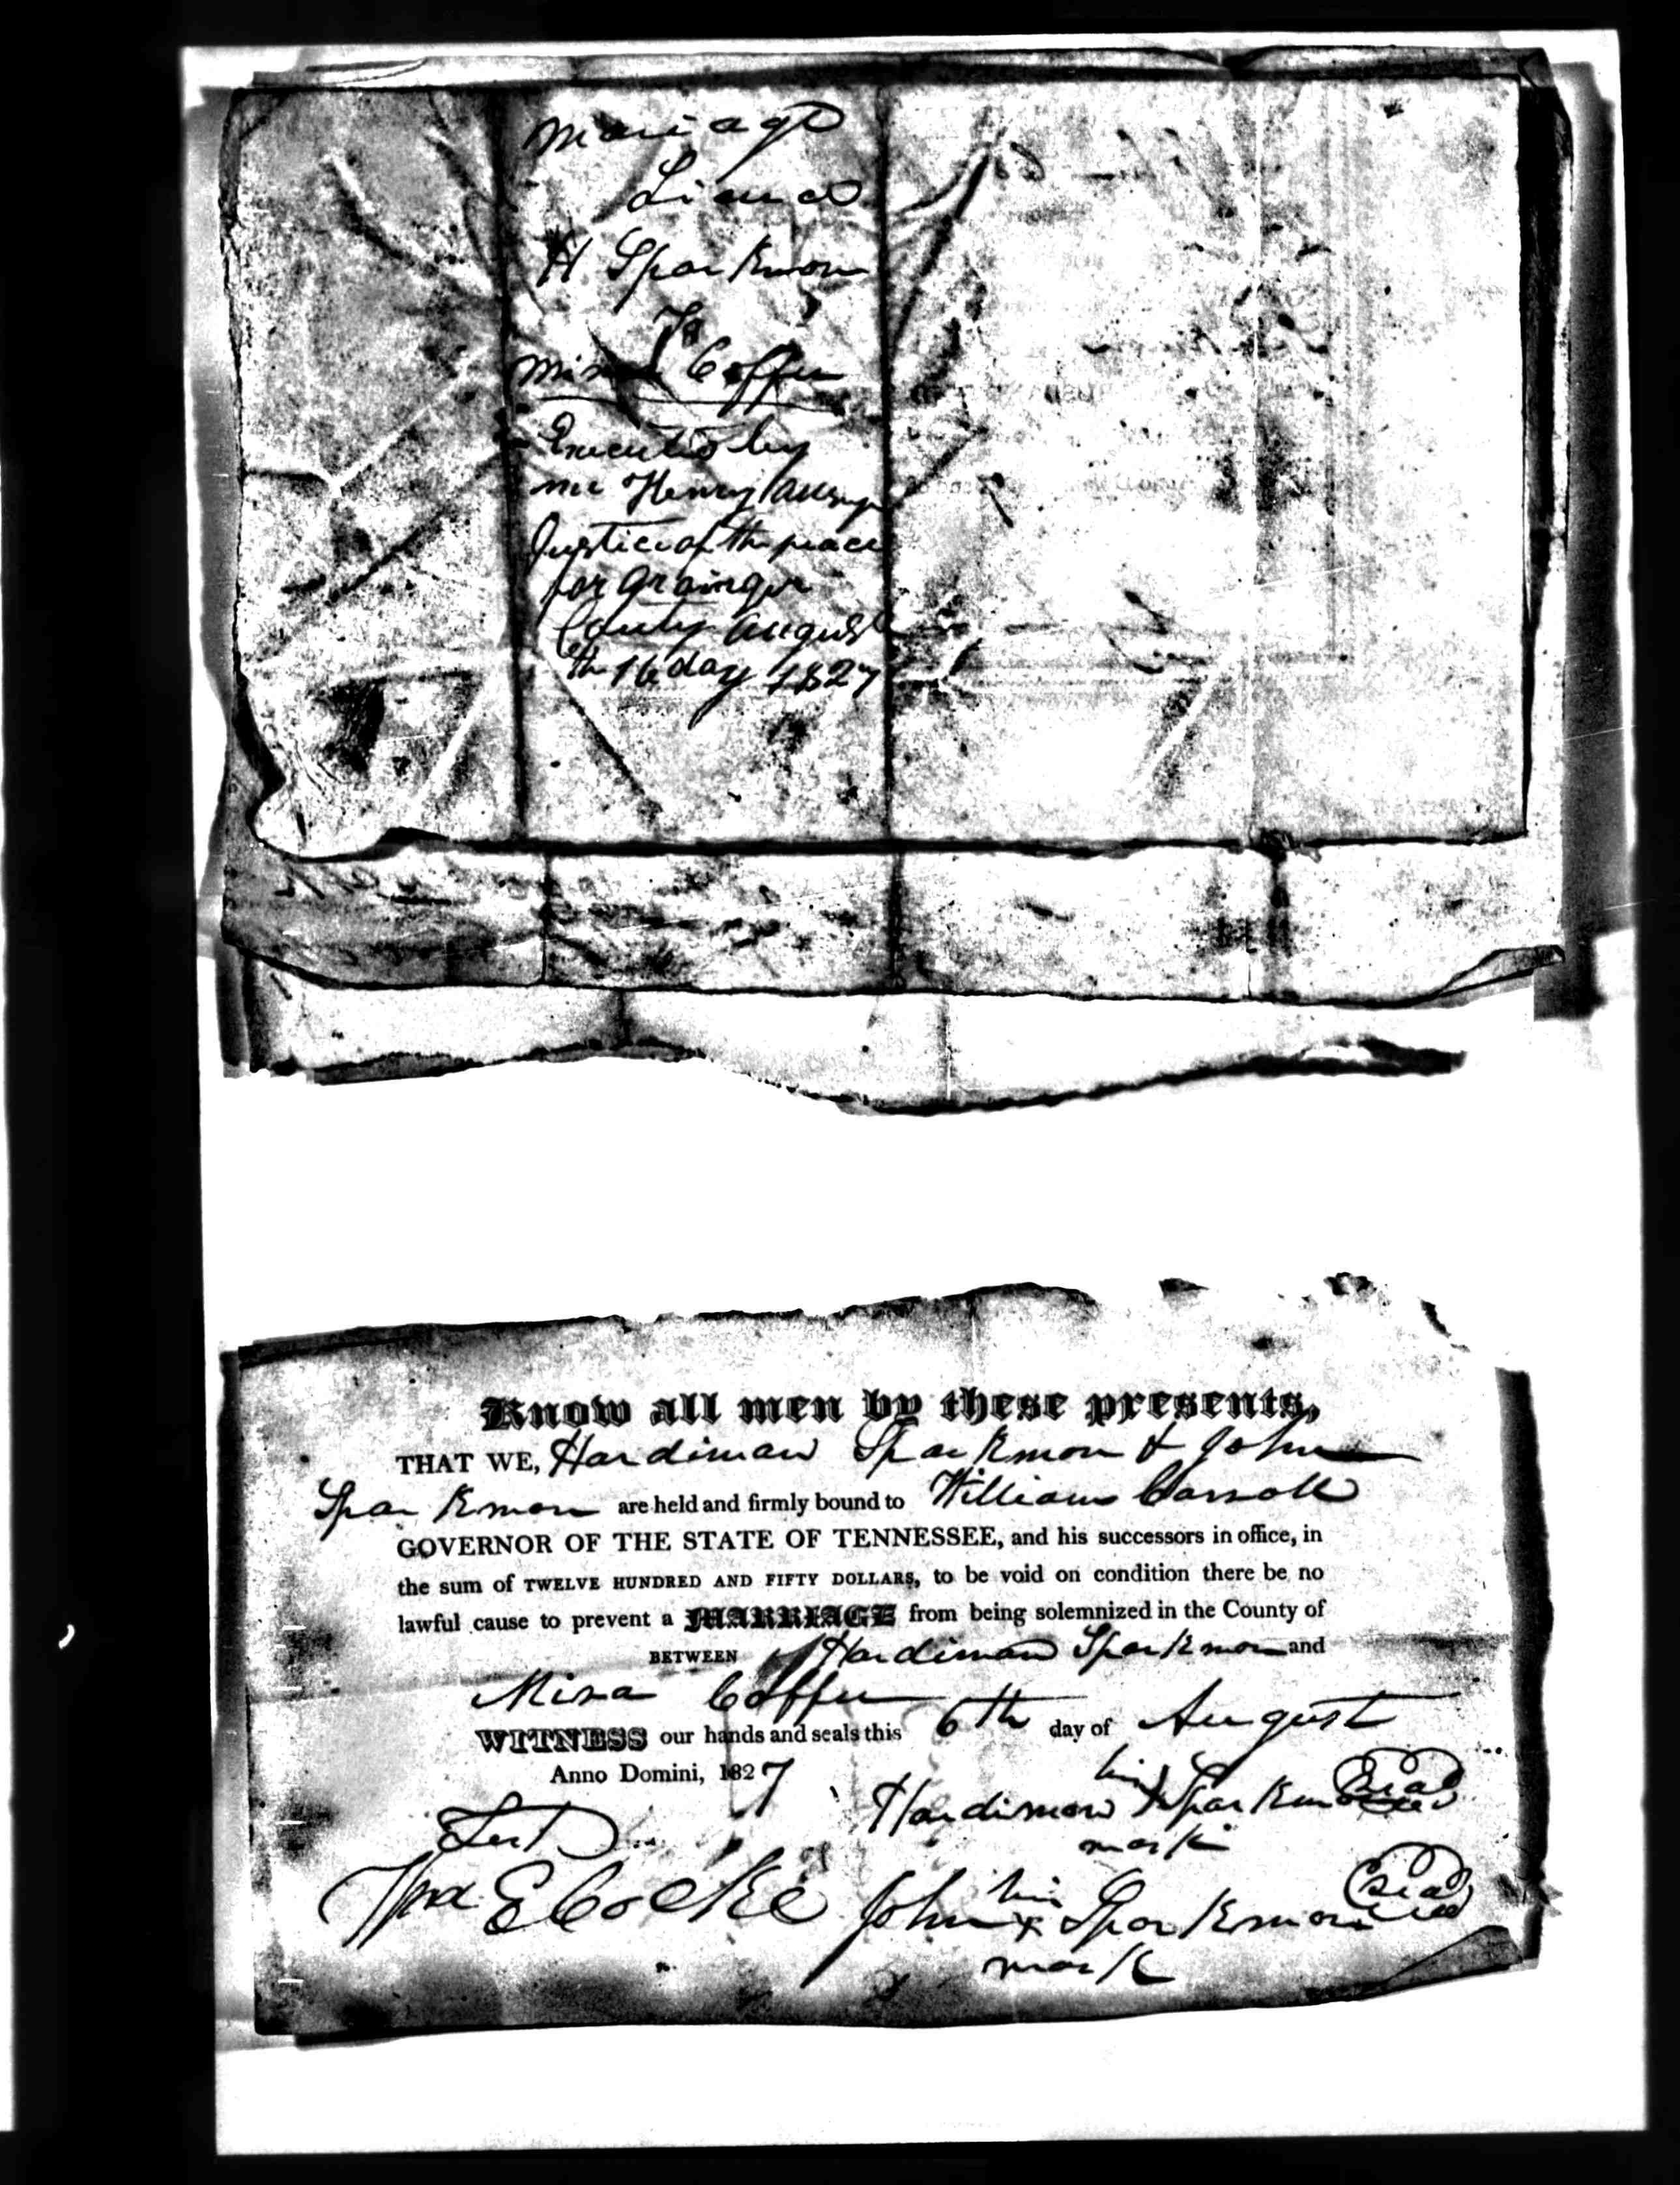 Mariage
Licence
H Sparkmon
To
Mina Coffee
Executed by
me Henry
Justice of the peace
for Grainger
County August
the 16 day 1827
Know all men by these presents,
THAT WE, Hardiman Sparkmon & John
Sparkmon are held and firmly bound to William Carroll
GOVERNOR OF THE STATE OF TENNESSEE, and his successors in office, in
the sum of TWELVE HUNDRED AND FIFTY DOLLARS, to be void on condition there be no
lawful cause to prevent a MARRIAGE from being solemnized in the County of
BETWEEN Hardiman Sparkmon and
Mina Coffee
WITNESS our hands and seals this 6th day of August
Anno Domini, 1827
his
Hardimon X Sparkmon Seal
mark
Test
Wm E Cocke
his
John x Sparkmon Seal
mark